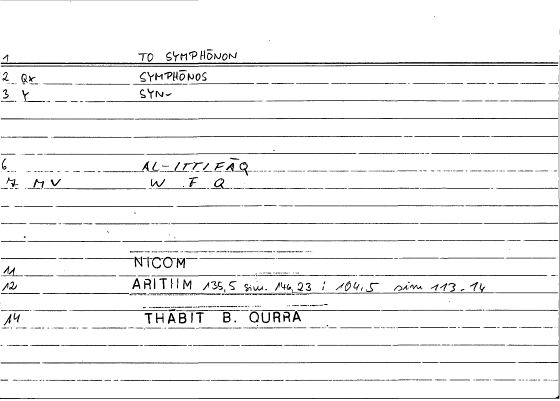 1 TO SYMPHŌNON
2 Qx SYMPHŌNOS
3 Y SYN-
6 AL-ITTIFĀQ
7 MV W F Q
11 NICOM
12 ARITIIM 135,5 sim. 146,23 ; 104.5 sim 113.14
14 THĀBIT B. QURRA